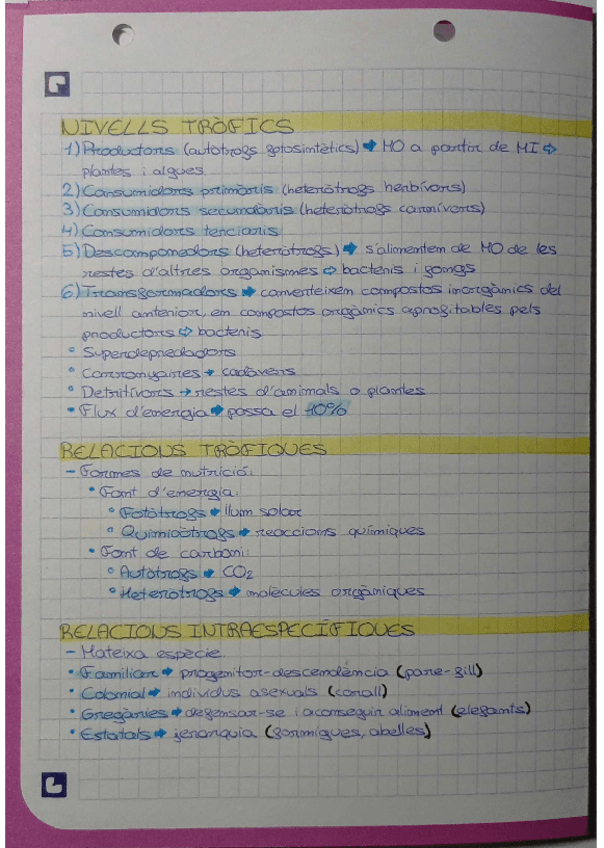 NIVELLS TRÒFICS
1) Productors (autòtrofs fotosintètics) ➡ MO a partir de MI ⇨
plantes i algues
2) Consumidors primaris (heteròtrofs herbívors)
3) Consumidors secundaris (heteròtrofs carnívors)
4) Consumidors terciaris
5) Descomponedors (heteròtrofs) ➡ s'alimentem de MO de les
restes d'altres organismes ⇨ bacteris i fongs
6) Transformadors ➡ converteixem compostos inorgànics del
nivell anterior, em compostos orgànics aprofitables pels
productors ⇨ bacteris
• Superdepredadors
• Carronyaires → cadàvers
• Detritívors → restes d'animals o plantes
• Flux d'energia ➡ passa el 10%
RELACIONS TRÒFIQUES
- Formes de nutrició:
• Font d'energia:
• Fotòtrofs ➡ llum solar
• Quimiòtrofs ➡ reaccions químiques
• Font de carboni:
• Autòtrofs ➡ CO2
• Heteròtrofs ➡ molècules orgàniques
RELACIONS INTRAESPECÍFIQUES
- Mateixa espècie.
• Familiar ➡ progenitor-descendència (pare-fill)
• Colonial ➡ individus asexuals (corall)
• Gregàries ➡ defensar-se i aconseguir aliment (elefants)
• Estatals ➡ jerarquia (formigues, abelles)